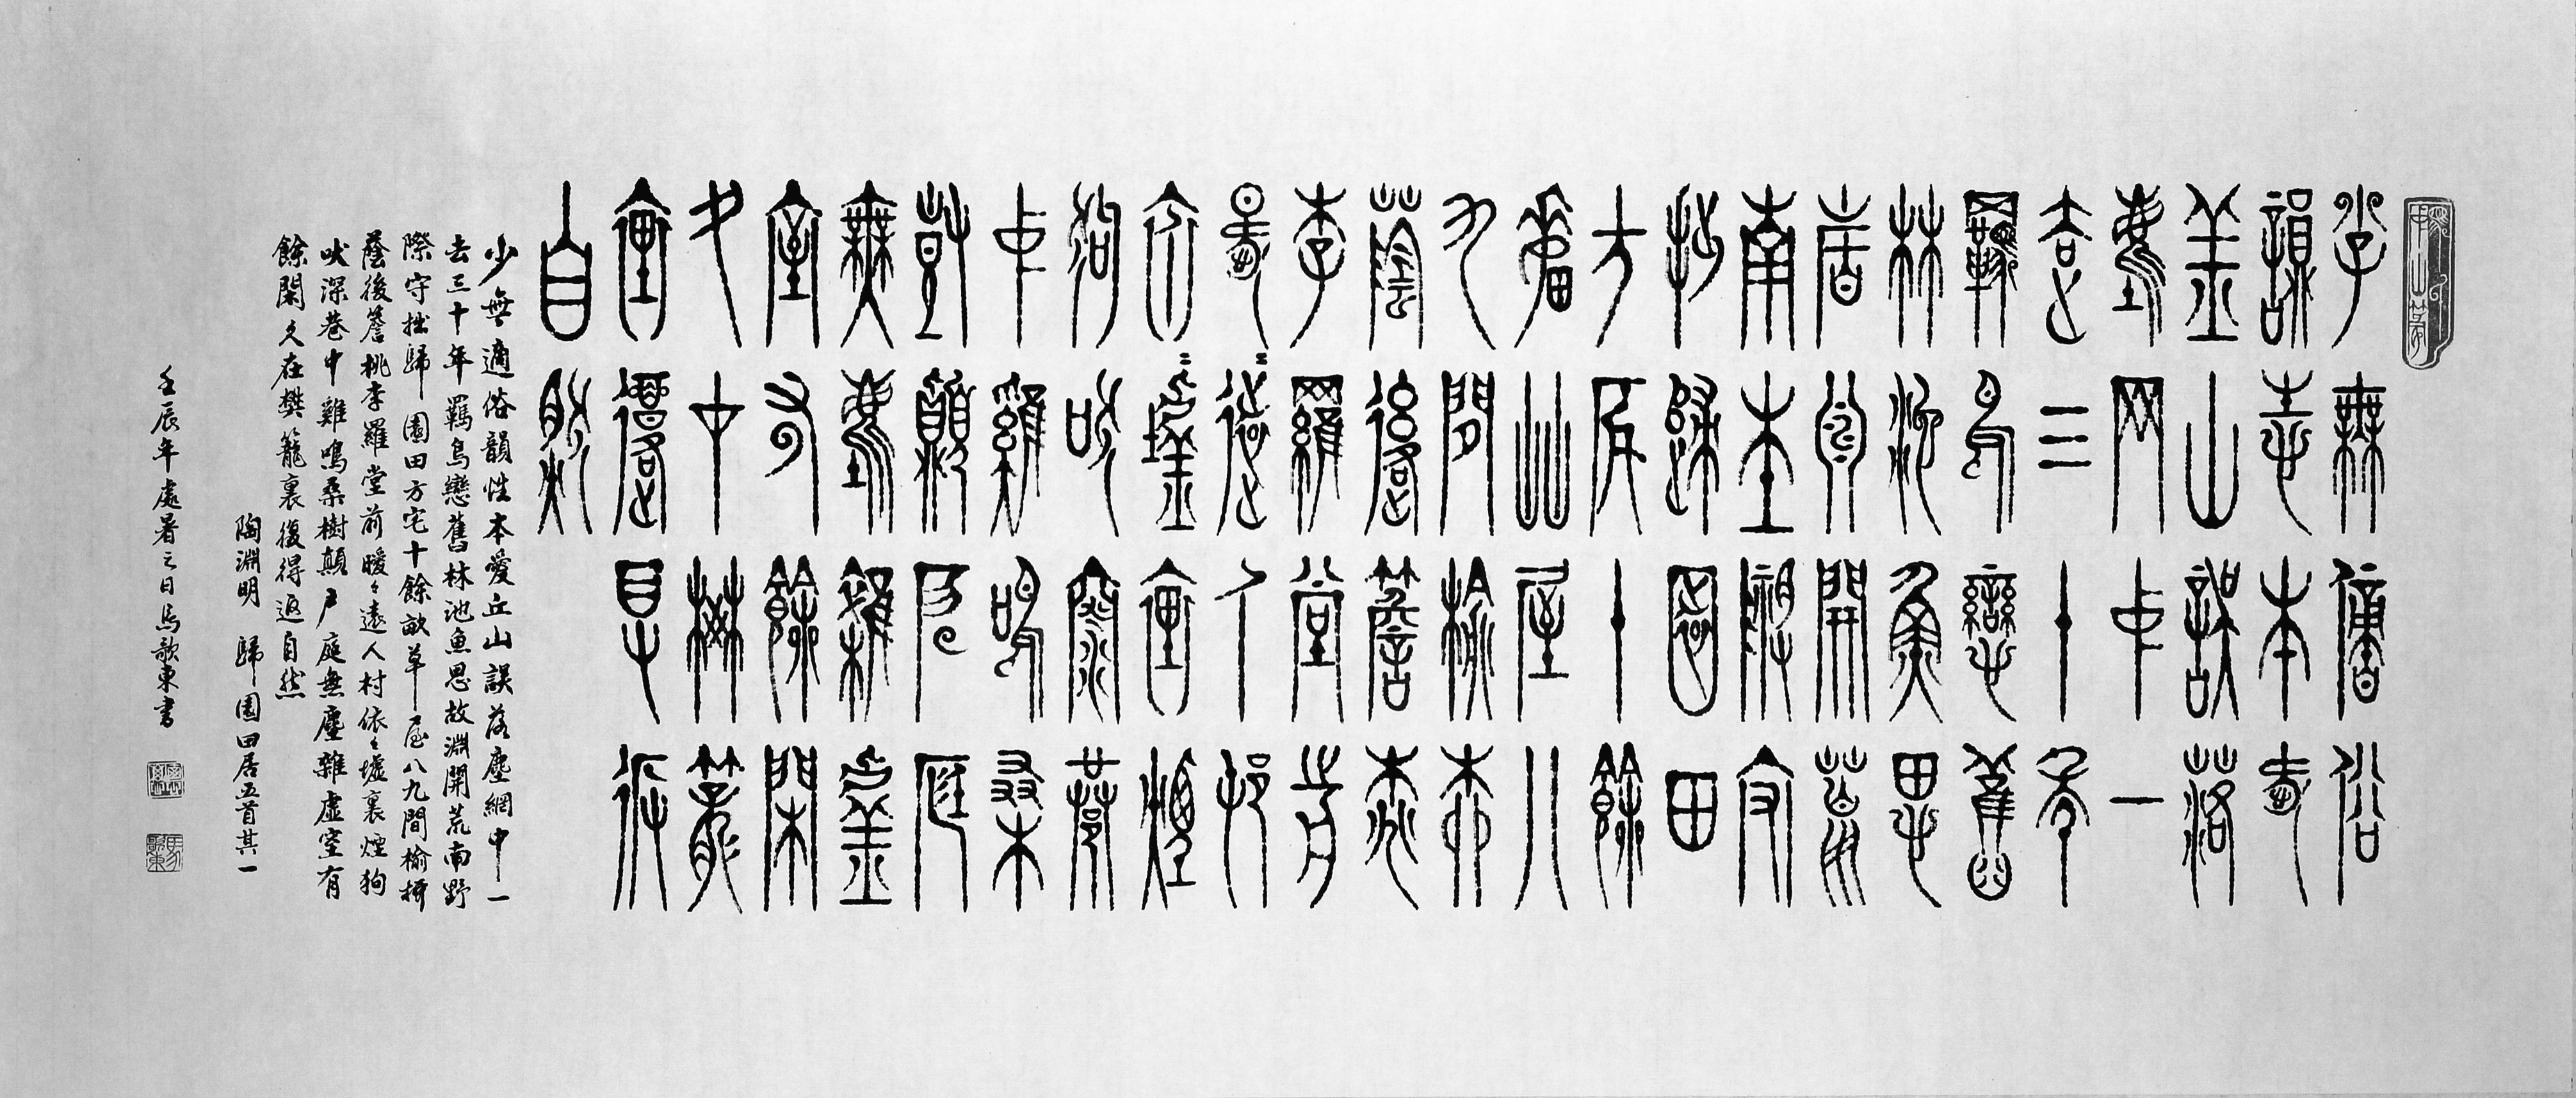 少無適俗
韻性本愛
丘山誤落
塵網中一
去三十年
羈鳥戀舊
林池魚思
故淵開荒
南野際守
拙歸園田
方宅十餘
畝草屋八
九間榆柳
蔭後簷桃
李羅堂前
曖〻遠人村
依〻墟裏煙
狗吠深巷
中雞鳴桑
樹顛戶庭
無塵雜虛
室有餘閑
久在樊籠
裏復得返
自然
少無適俗韻性本愛丘山誤落塵網中一
去三十年羈鳥戀舊林池魚思故淵開荒南野
際守拙歸園田方宅十餘畝草屋八九間榆柳
蔭後簷桃李羅堂前曖〻遠人村依〻墟裏煙狗
吠深巷中雞鳴桑樹顛戶庭無塵雜虛室有
餘閑久在樊籠裏復得返自然
陶淵明 歸園田居五首其一
壬辰年處暑之日馬歌東書
馬歌東